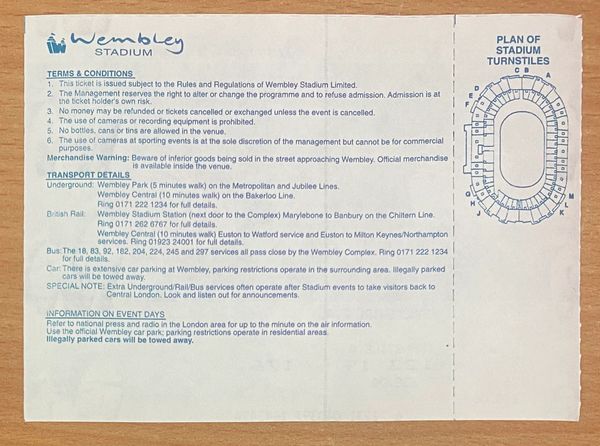 Wembley
STADIUM
TERMS & CONDITIONS
1. This ticket is issued subject to the Rules and Regulations of Wembley Stadium Limited.
2. The Management reserves the right to alter or change the programme and to refuse admission. Admission is at
the ticket holder's own risk.
3. No money may be refunded or tickets cancelled or exchanged unless the event is cancelled.
4. The use of cameras or recording equipment is prohibited.
5. No bottles, cans or tins are allowed in the venue.
6. The use of cameras at sporting events is at the sole discretion of the management but cannot be for commercial
purposes.
Merchandise Warning: Beware of inferior goods being sold in the street approaching Wembley. Official merchandise
is available inside the venue.
TRANSPORT DETAILS
Underground: Wembley Park (5 minutes walk) on the Metropolitan and Jubilee Lines.
Wembley Central (10 minutes walk) on the Bakerloo Line.
Ring 0171 222 1234 for full details.
British Rail: Wembley Stadium Station (next door to the Complex) Marylebone to Banbury on the Chiltern Line.
Ring 0171 262 6767 for full details.
Wembley Central (10 minutes walk) Euston to Watford service and Euston to Milton Keynes/Northampton
services. Ring 01923 24001 for full details.
Bus: The 18, 83, 92, 182, 204, 224, 245 and 297 services all pass close by the Wembley Complex. Ring 0171 222 1234
for full details.
Car: There is extensive car parking at Wembley, parking restrictions operate in the surrounding area. Illegally parked
cars will be towed away.
SPECIAL NOTE: Extra Underground/Rail/Bus services often operate after Stadium events to take visitors back to
Central London. Look and listen out for announcements.
INFORMATION ON EVENT DAYS
Refer to national press and radio in the London area for up to the minute on the air information.
Use the official Wembley car park; parking restrictions operate in residential areas.
Illegally parked cars will be towed away.
PLAN OF
STADIUM
TURNSTILES
C B
D A
E
F
G M
H L
J K